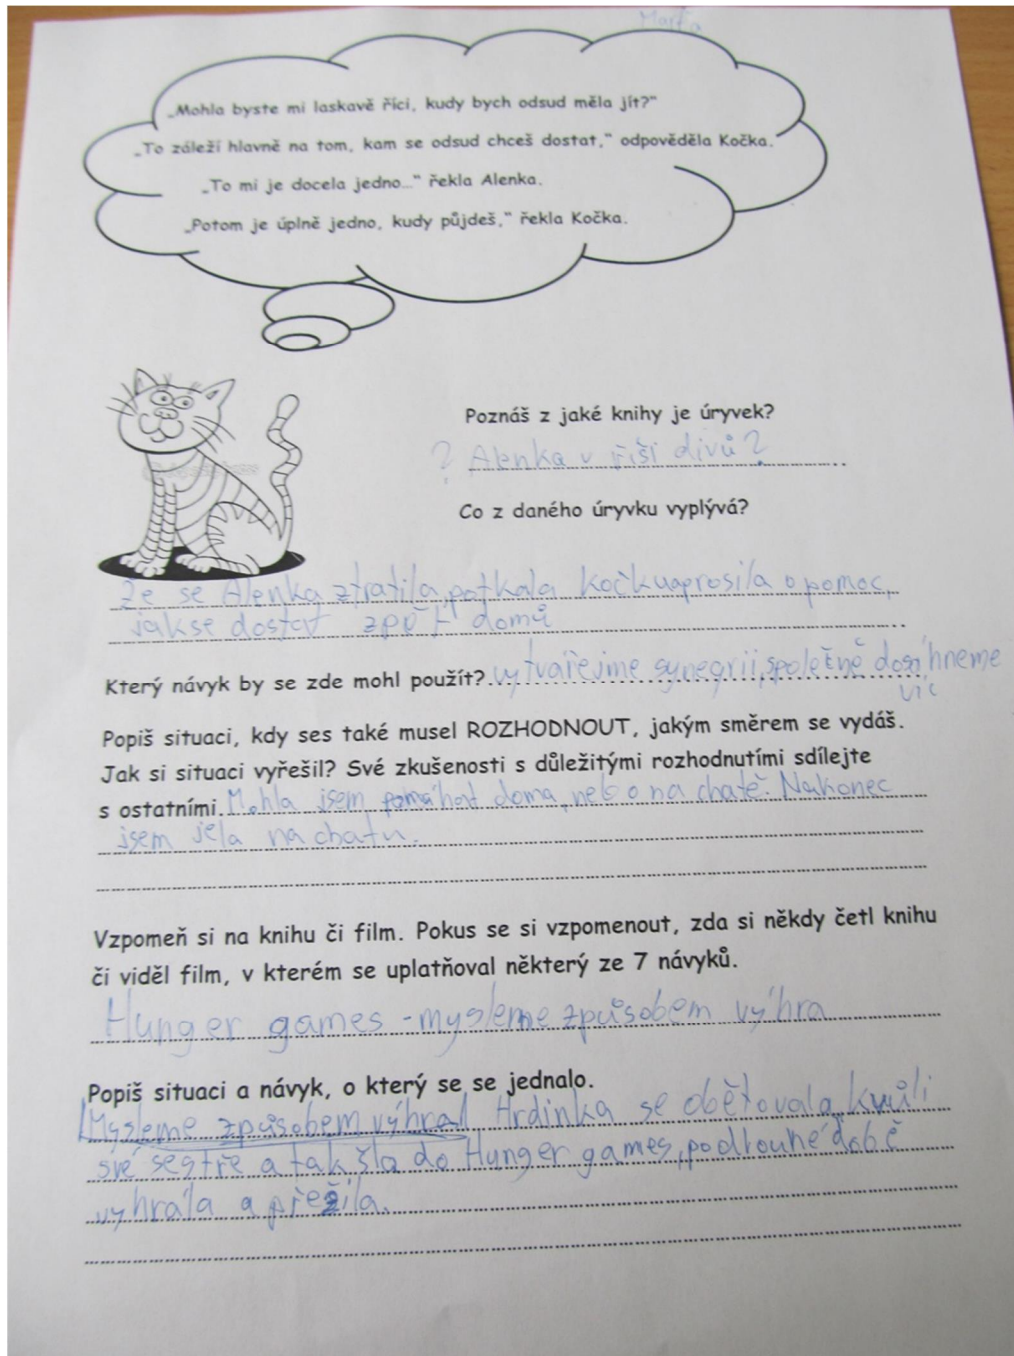 Marťa
„Mohla byste mi laskavě říci, kudy bych odsud měla jít?“
„To záleží hlavně na tom, kam se odsud chceš dostat,“ odpověděla Kočka.
„To mi je docela jedno…“ řekla Alenka.
„Potom je úplně jedno, kudy půjdeš,“ řekla Kočka.
Poznáš z jaké knihy je úryvek?
? Alenka v říši divů?
Co z daného úryvku vyplývá?
Že se Alenka ztratila, potkala kočkuaprosila o pomoc,
jakse dostat zpět domů
Který návyk by se zde mohl použít? vytvařejme synegrii, společně dosáhneme
víc
Popiš situaci, kdy ses také musel ROZHODNOUT, jakým směrem se vydáš.
Jak si situaci vyřešil? Své zkušenosti s důležitými rozhodnutími sdílejte
s ostatními. Mohla jsem pomáhat doma, nebo na chatě. Nakonec
jsem jela na chatu.
Vzpomeň si na knihu či film. Pokus se si vzpomenout, zda si někdy četl knihu
či viděl film, v kterém se uplatňoval některý ze 7 návyků.
Hunger games - mysleme způsobem výhra
Popiš situaci a návyk, o který se se jednalo.
Mysleme způsobem výhra Hrdinka se obětovala kvůli
své sestře a tak šla do Hunger games, podlouhé době
vyhrála a přežila.